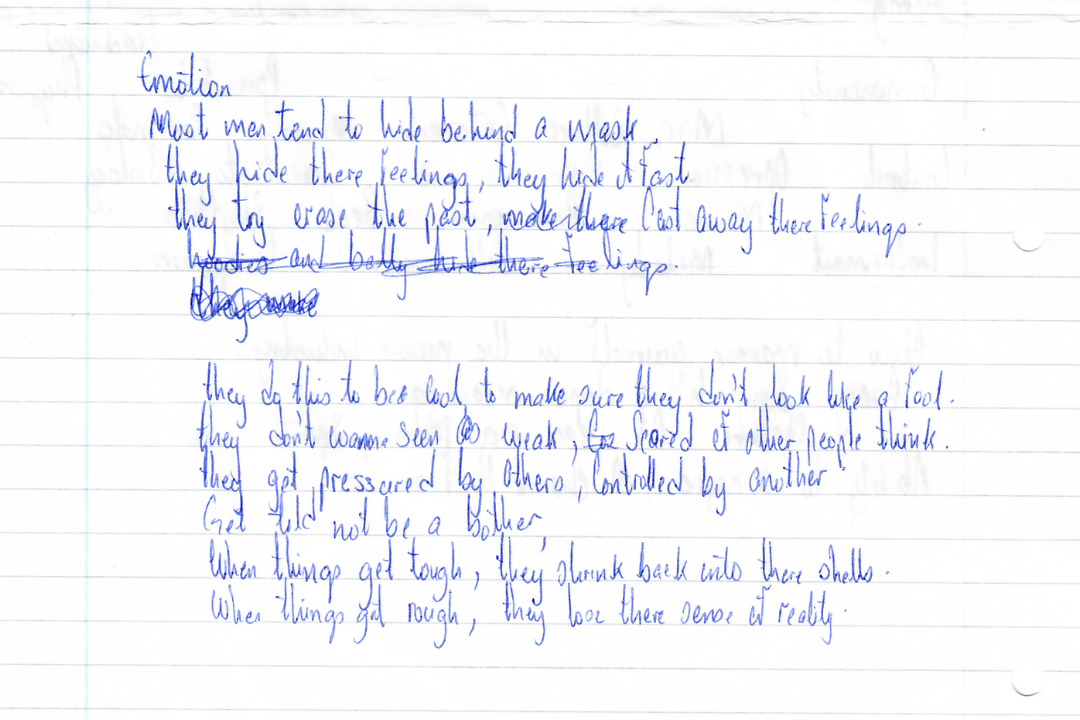 Emotion
Most men tend to hide behind a mask.
they hide there feelings, they hide it fast
they try erase the past, make there Cast away there feelings.
hoodies and bally hide there feelings.
they make
they do this to be cool, to make sure they don't look like a fool.
they don't wanna seen as weak, Scared of other people think.
they get pressured by others, Controlled by another
Get told not be a bother,
When things get tough, they shrink back into there shells.
When things get rough, they lose there sense of reality.